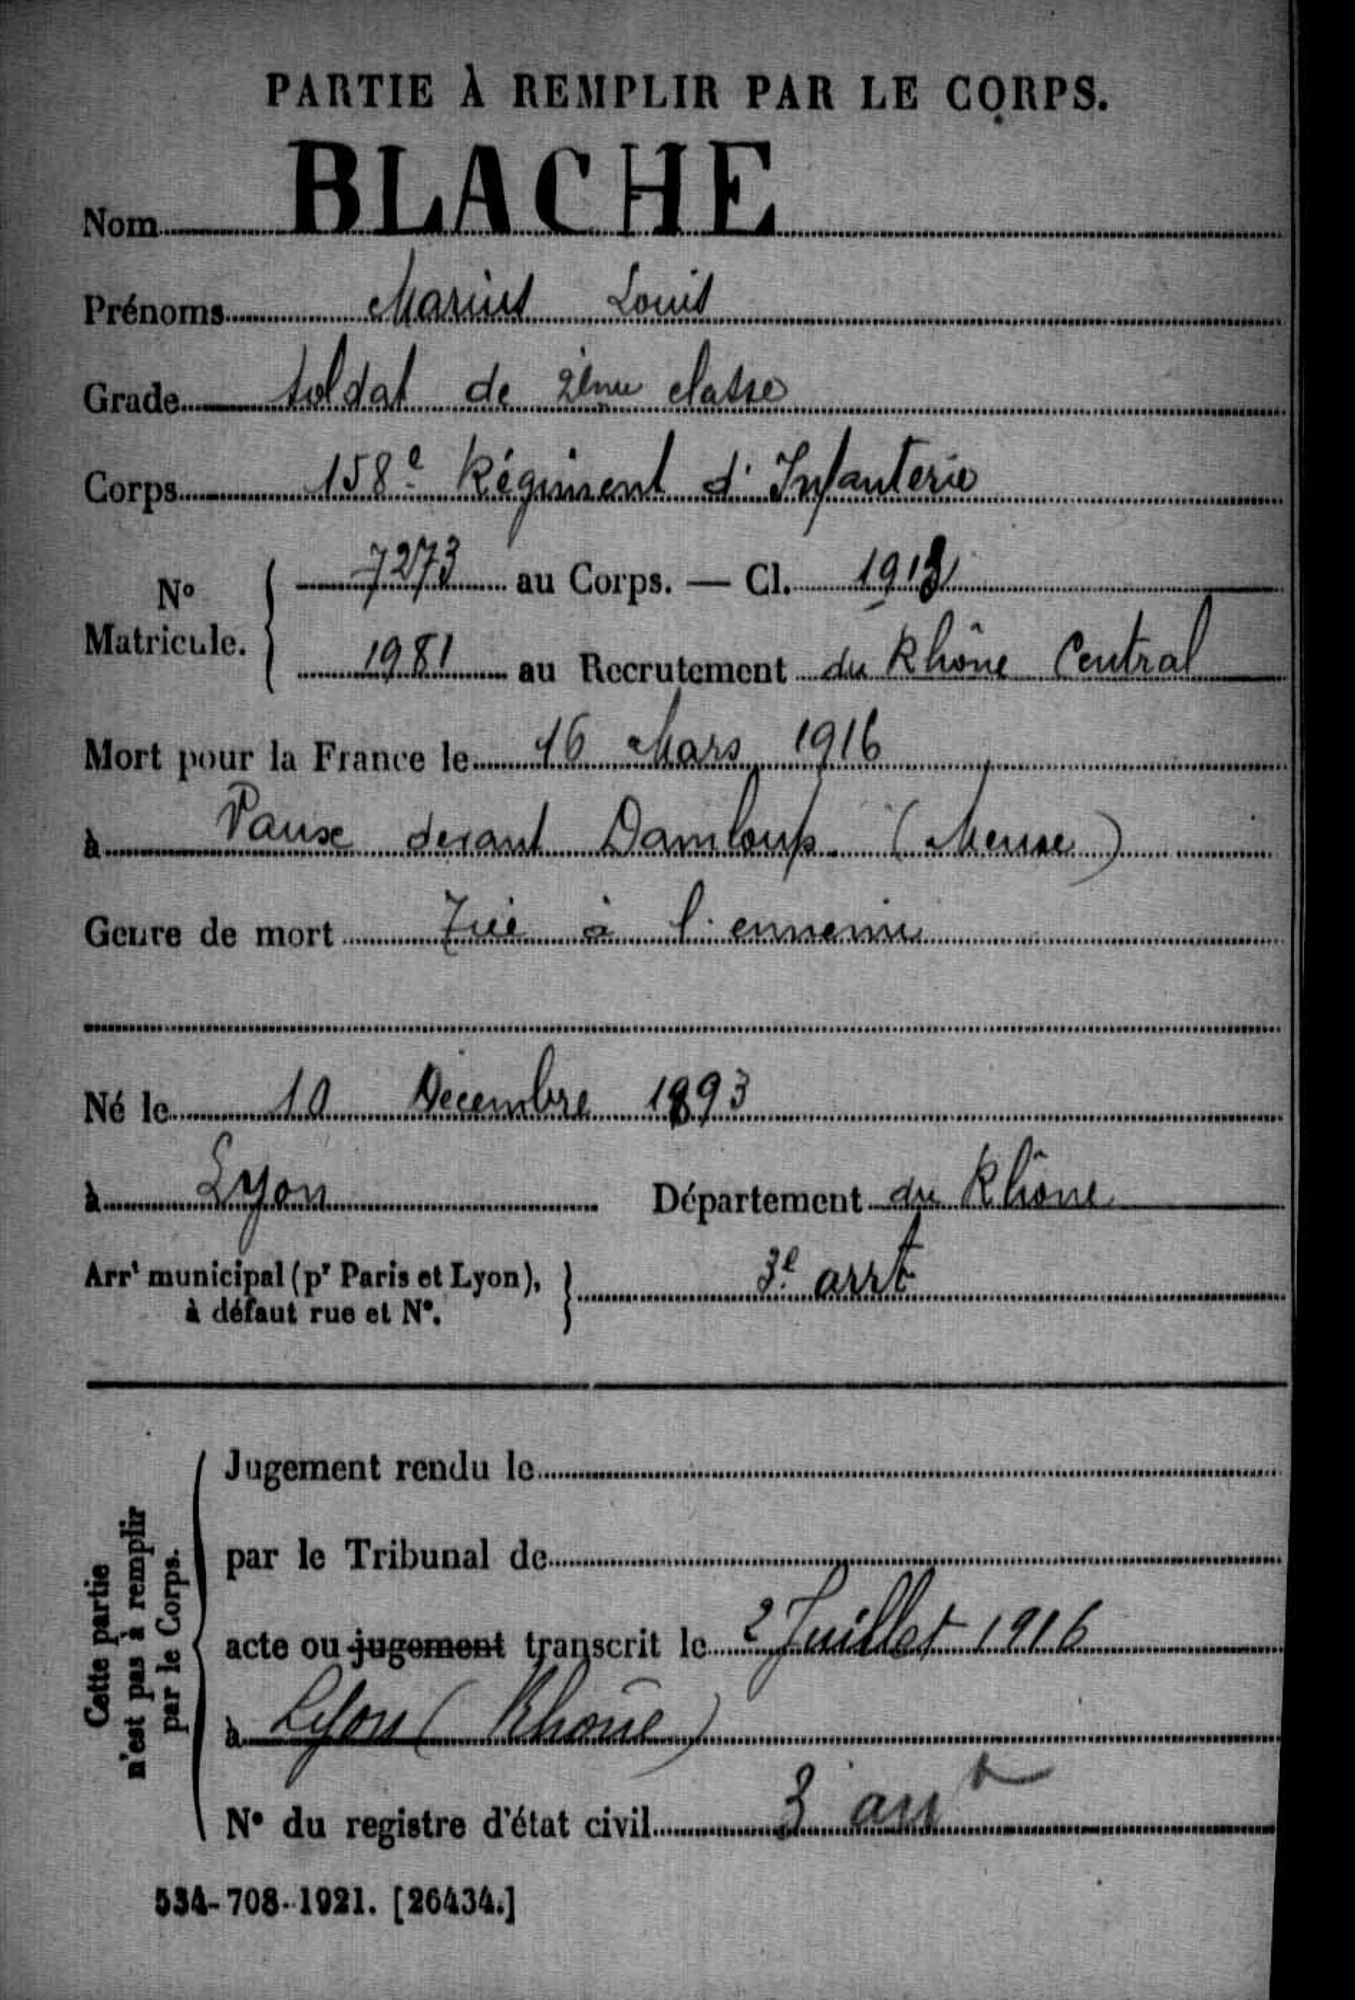 PARTIE À REMPLIR PAR LE CORPS.
Nom BLACHE
Prénoms Marius Louis
Grade Soldat de 2ème classe
Corps 158e Régiment d'Infanterie
No Matricule. 7273 au Corps. — Cl. 1913
1981 au Recrutement du Rhône Central
Mort pour la France le 16 Mars 1916
à devant Damloup (Meuse)
Genre de mort Tué à l'ennemi
Né le 10 Décembre 1893
à Lyon Département du Rhône
Arrt municipal (pr Paris et Lyon), à défaut rue et No. 3e arrt
Cette partie n'est pas à remplir par le Corps.
Jugement rendu le
par le Tribunal de
acte ou jugement transcrit le 2 Juillet 1916
à Lyon (Rhône)
No du registre d'état civil 3 arrt
534-708-1921. [26434.]